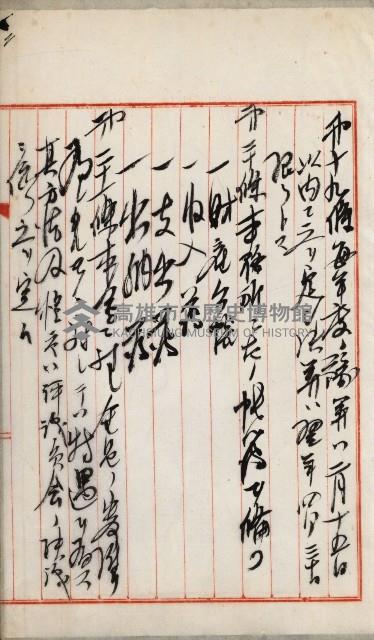 第十九條每年度ノ豫算ハ二月十五日
以内ニ之ヲ定メ決算ハ翌年四月三十日
限リトス
第二十條本務所ニ左ノ帳簿ヲ備フ
一財產台帳
一收入簿
一支出簿
一出納簿
第二十一條本會ニ
ニ對シテハ特遇ヲ為ス
其方法及程度ハ評議員會ノ決議
ニ依リ之ヲ定ム
高雄市立歷史博物館
KAOHSIUNG MUSEUM OF HISTORY